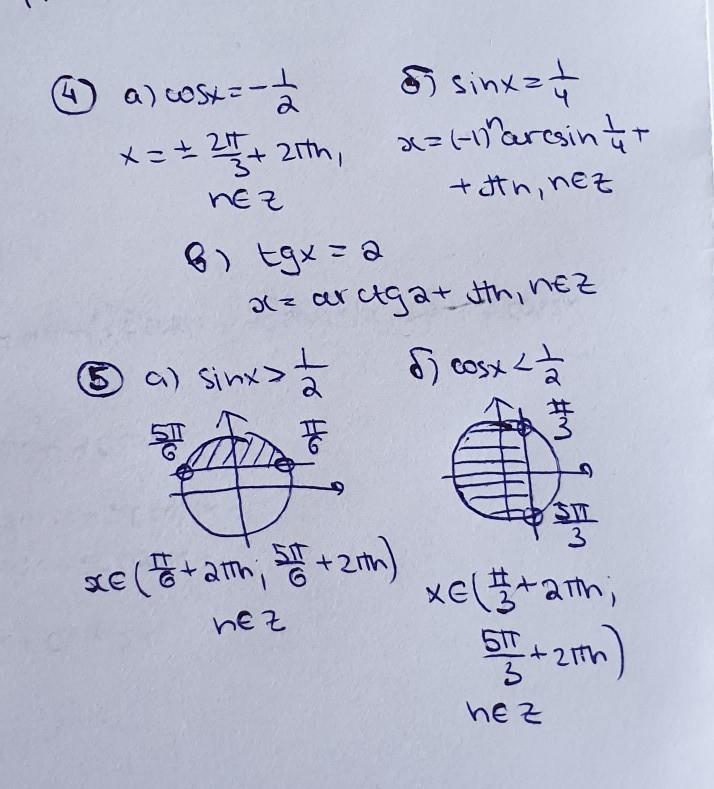 ④ а) cosx = -1/2
x = ± 2π/3 + 2πn,
n∈Z
б) sinx = 1/4
x = (-1)ⁿ arcsin 1/4 +
+ πn, n∈Z
в) tgx = 2
x = arctg2 + πn, n∈Z
⑤ а) sinx > 1/2
5π/6 π/6
x∈(π/6 + 2πn; 5π/6 + 2πn)
n∈Z
б) cosx < 1/2
π/3
5π/3
x∈(π/3 + 2πn;
5π/3 + 2πn)
n∈Z